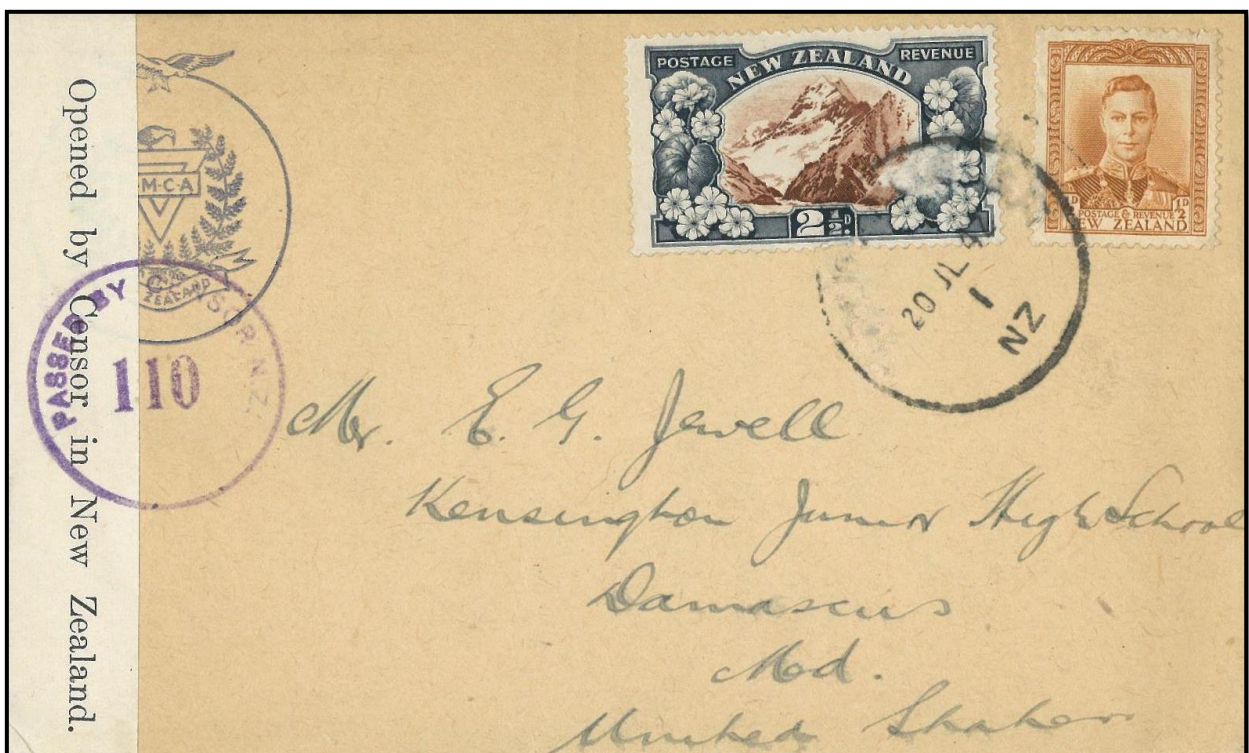 Opened by Censor in New Zealand.
M.C.A
ZEALAND
PASSED BY
SOR.N.Z.
110
POSTAGE NEW ZEALAND REVENUE
2½D.
½D
POSTAGE & REVENUE
NEW ZEALAND
20 JL 4
1
NZ
Mr. E. G. Jewell
Kensington Junior High School
Damascus
Md.
United States